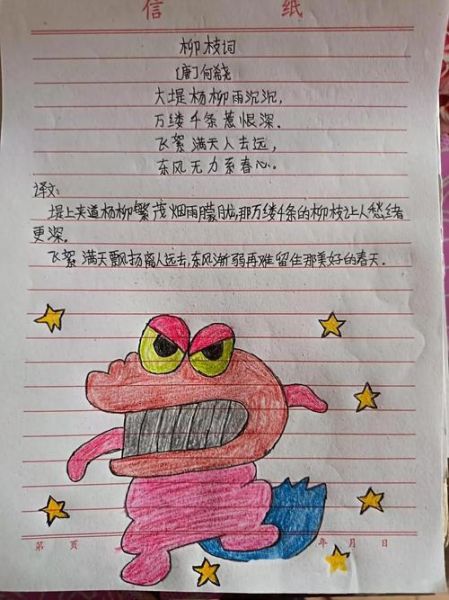 信 纸
柳枝词
[唐]何希尧
大堤杨柳雨沉沉,
万缕千条惹恨深.
飞絮满天人去远,
东风无力系春心.
译文:
堤上夹道杨柳繁茂烟雨朦胧,那万缕千条的柳枝让人愁绪
更深.
飞絮满天飘扬离人远去,东风渐弱再难留住那美好的春天.
第 页 年 月 日